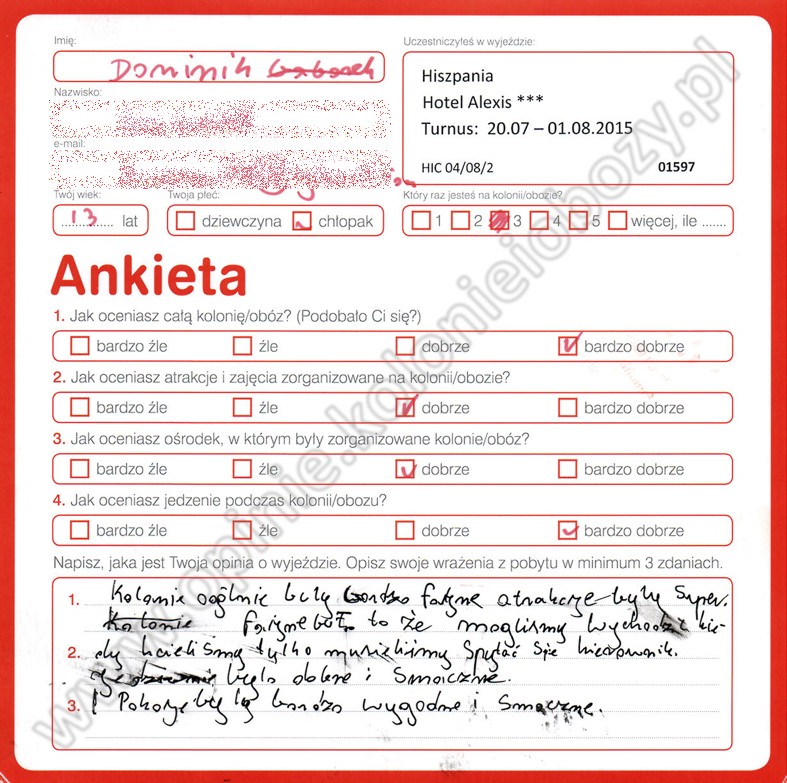 Imię:
Dominik
Nazwisko:
e-mail:
Uczestniczyłeś w wyjeździe:
Hiszpania
Hotel Alexis ***
Turnus: 20.07 – 01.08.2015
HIC 04/08/2 01597
Twój wiek:
13 lat
Twoja płeć:
dziewczyna chłopak
Który raz jesteś na kolonii/obozie?
1 2 3 4 5 więcej, ile .......
Ankieta
1. Jak oceniasz całą kolonię/obóz? (Podobało Ci się?)
bardzo źle źle dobrze bardzo dobrze
2. Jak oceniasz atrakcje i zajęcia zorganizowane na kolonii/obozie?
bardzo źle źle dobrze bardzo dobrze
3. Jak oceniasz ośrodek, w którym były zorganizowane kolonie/obóz?
bardzo źle źle dobrze bardzo dobrze
4. Jak oceniasz jedzenie podczas kolonii/obozu?
bardzo źle źle dobrze bardzo dobrze
Napisz, jaka jest Twoja opinia o wyjeździe. Opisz swoje wrażenia z pobytu w minimum 3 zdaniach.
1. Kolonie ogólnie były bardzo fajne atrakcje były super.
Kolonie fajne było to że mogliśmy wychodzić kie-
2. dy hcieliśmy tylko musieliśmy spytać sie kierownik.
było dobre i smaczne.
3. Pokoje były bardzo wygodne i smaczne.
www.opinie.kolonieiobozy.pl